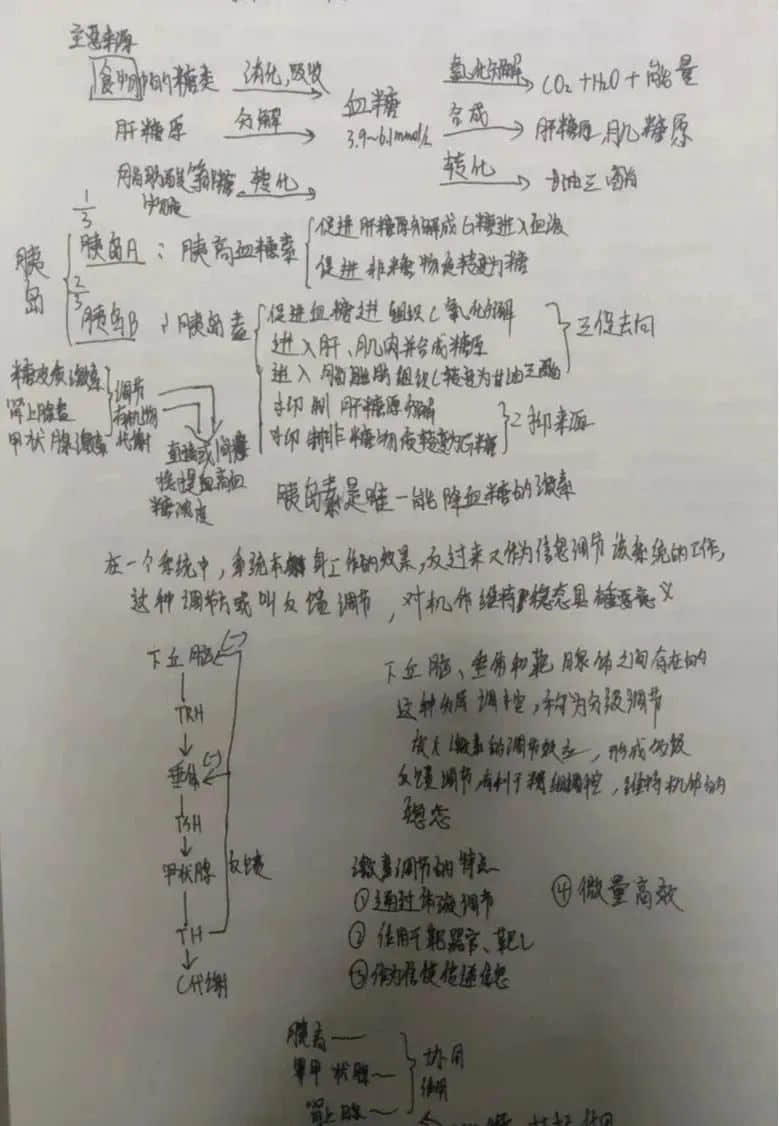 主要来源
食物中的糖类 消化,吸收 血糖 氧化分解 CO2+H2O+能量
肝糖原 分解 3.9~6.1mmol/L 合成 肝糖原,肌糖原
脂肪酸等非糖物质 转化 转化 甘油三酯
1/3
胰岛A:胰高血糖素
促进肝糖原分解成G糖进入血液
促进非糖物质转变为糖
胰岛
2/3
胰岛B:胰岛素
促进血糖进组织C氧化分解
进入肝、肌肉并合成糖原
进入脂肪组织C转变为甘油三酯
三促去向
抑制肝糖原分解
抑制非糖物质转变为G糖
2抑来源
糖皮质激素
肾上腺素
甲状腺激素
调节
有机物
代谢
直接或间接
提高血
糖浓度
胰岛素是唯一能降血糖的激素
在一个系统中,系统本身工作的效果,反过来又作为信息调节该系统的工作,
这种调节方式叫反馈调节,对机体维持稳态具重要意义
下丘脑 (-)
TRH
垂体 (-)
TSH
甲状腺 反馈
TH
C代谢
下丘脑、垂体和靶腺体之间存在的
这种分层调控,称为分级调节
放大激素的调节效应,形成多级
反馈调节,有利于精细调控,维持机体的
稳态
激素调节的特点
①通过体液调节
②作用于靶器官、靶C
③作为信使传递信息
④微量高效
胰高——
甲状腺—
肾上腺—
协同
作用